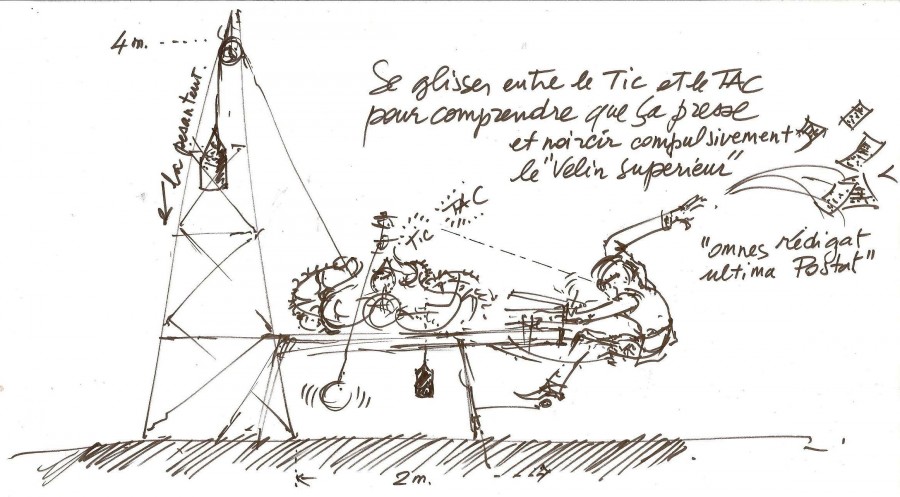 4m.
la pesanteur.
Se glisser entre le Tic et le TAC
pour comprendre que ça presse
et noircir compulsivement
le "Velin Superieur"
TAC
TIC
"omnes rédigat
ultima Postat"
2m.